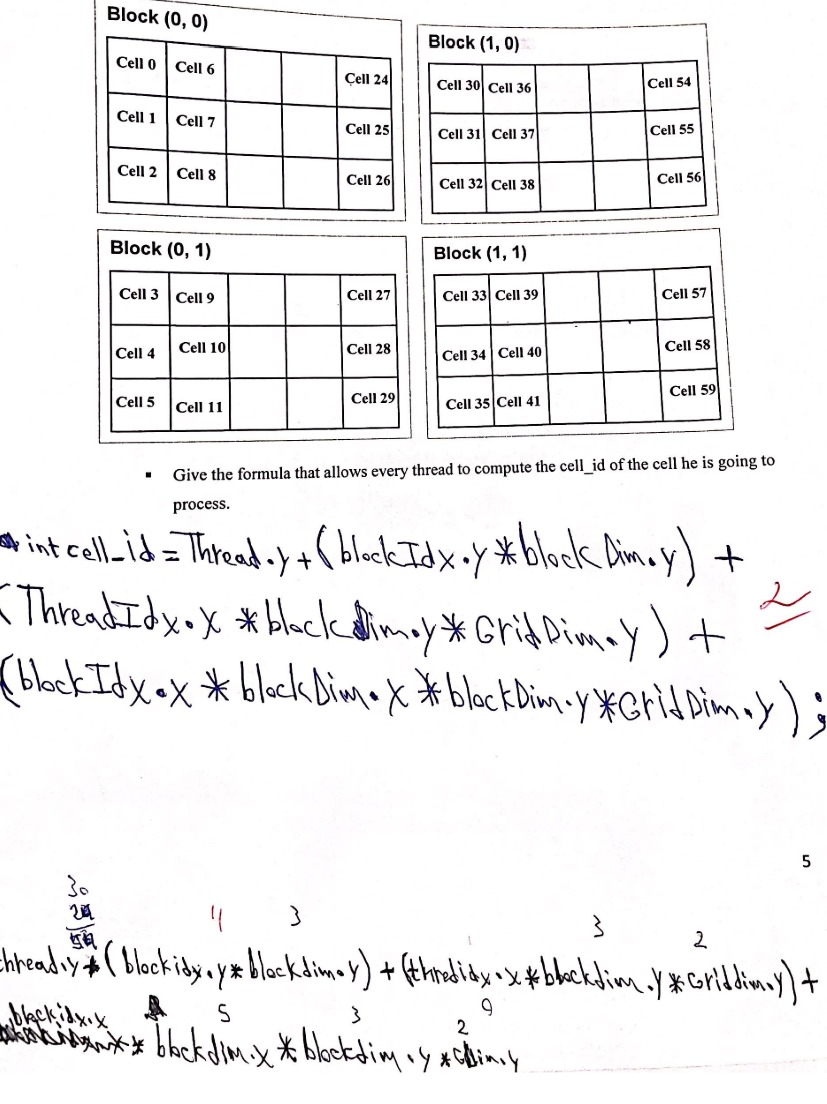 Block (0, 0)
Cell 0 Cell 6 Cell 24
Cell 1 Cell 7 Cell 25
Cell 2 Cell 8 Cell 26
Block (1, 0)
Cell 30 Cell 36 Cell 54
Cell 31 Cell 37 Cell 55
Cell 32 Cell 38 Cell 56
Block (0, 1)
Cell 3 Cell 9 Cell 27
Cell 4 Cell 10 Cell 28
Cell 5 Cell 11 Cell 29
Block (1, 1)
Cell 33 Cell 39 Cell 57
Cell 34 Cell 40 Cell 58
Cell 35 Cell 41 Cell 59
▪ Give the formula that allows every thread to compute the cell_id of the cell he is going to
process.
int cell_id = Thread.y + (blockIdx.y * blockDim.y) +
(ThreadIdx.x * blockdim.y * GridDim.y) +
2
(blockIdx.x * blockDim.x * blockDim.y * GridDim.y);
5
30
4 3 3 2
thread.y + (blockidy.y * blockdim.y) + (thredidy.x * blockdim.y * Griddim.y) +
5 3 2 9
blockidx.x * blockdim.x * blockdim.y * GDim.y